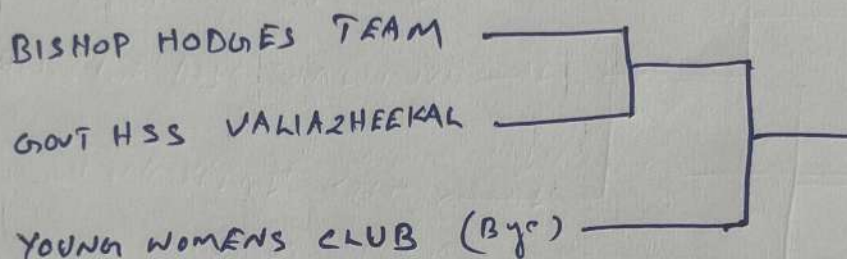 BISHOP HODGES TEAM
GOVT HSS VALIAZHEEKAL
YOUNG WOMENS CLUB (Bye)